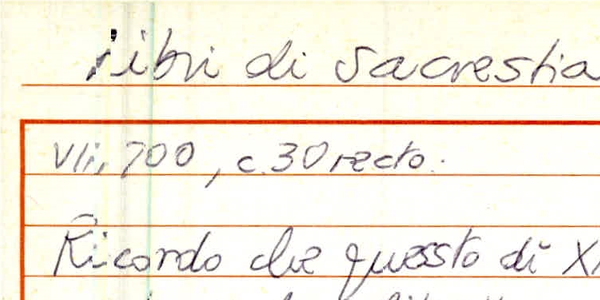 libri di sacrestia
VII, 700, c. 30 recto.
Ricordo che quessto dì